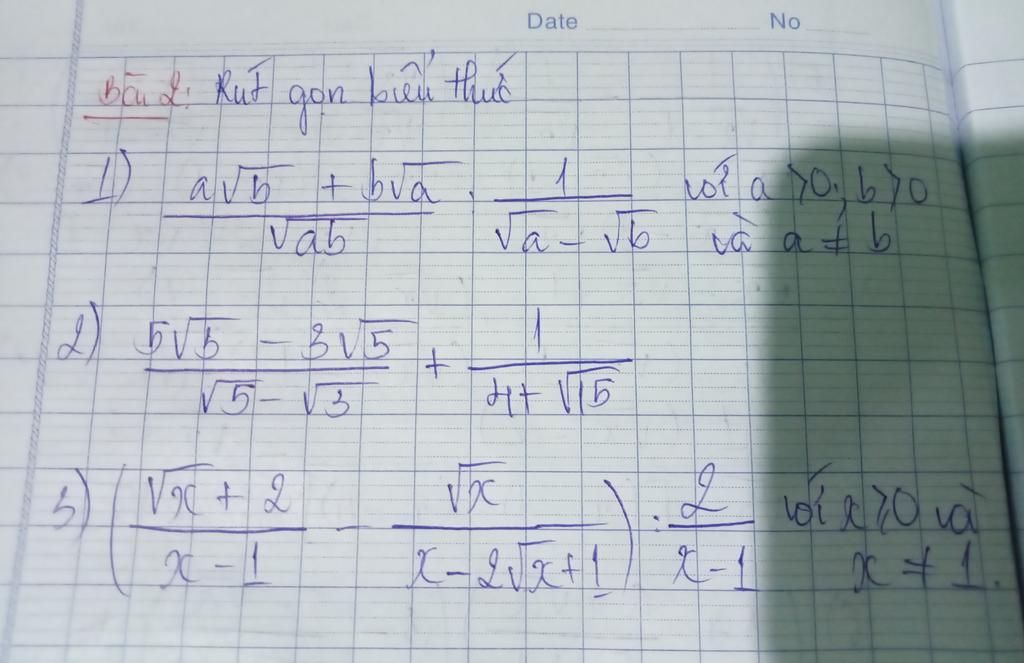 Date No
Bài 2: Rút gọn biểu thức
1) (a√b + b√a)/√ab . 1/(√a - √b) với a > 0; b > 0 và a ≠ b
2) (5√5 - 3√5)/(√5 - √3) + 1/(4 + √15)
3) ((√x + 2)/(x - 1) - √x/(x - 2√x + 1)) : 2/(x - 1) với x ≥ 0 và x ≠ 1.